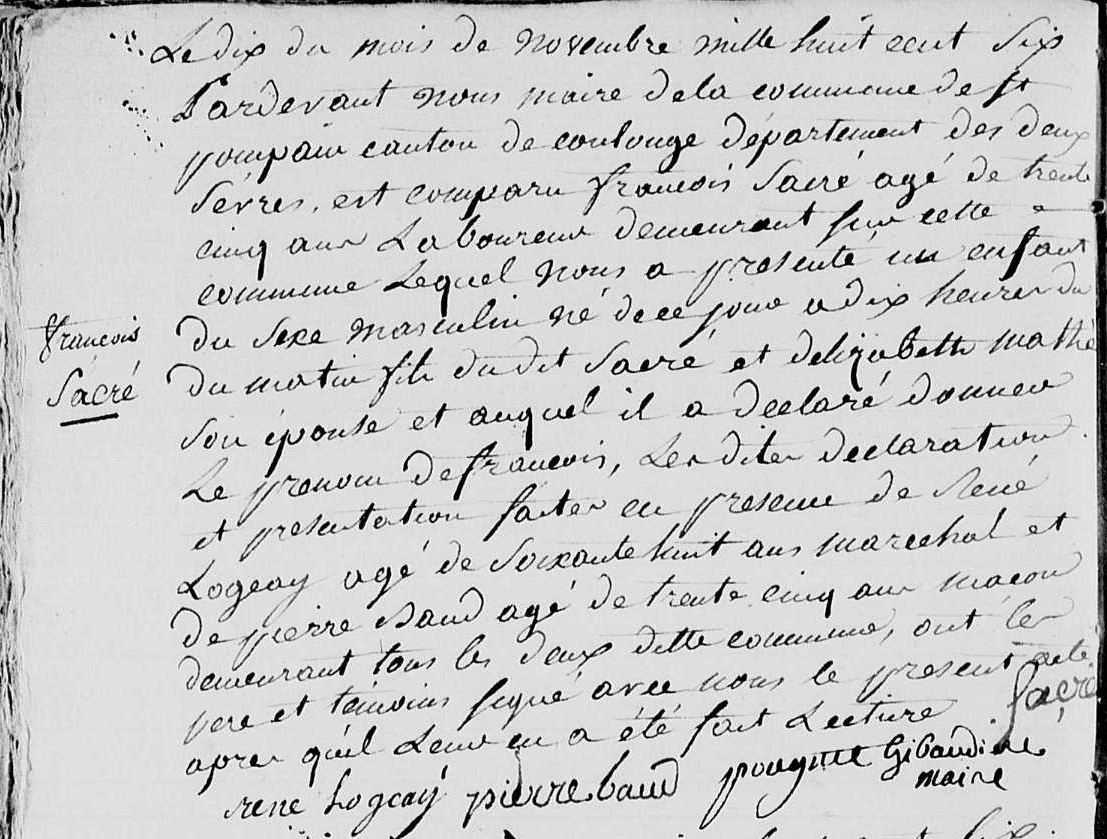 Le dix du mois de novembre mille huit cent six
Pardevant nous maire de la commune de st
pompain canton de coulonge département des deux
Sévres, est comparu francois Sacré agé de trente
cinq ans Laboureur demeurant sur cette
commune Lequel nous a presenté un enfant
du sexe masculin né de ce jour a dix heures du
du matin fils dudit Sacré et delizabeth mathé
son épouse et auquel il a declaré donner
Le prenom de francois, Les dites declaration
et presentation faites en presence de René
Logeay agé de soixante huit ans marechal et
de pierre Baud agé de trente cinq ans maçon
demeurant tous les deux ditte commune, ont les
pere et témoins signé avec nous le present acte
apres quil Leur en a été fait Lecture
Sacré
rene Logeay pierre baud pougnet Gibaudiere
maire
francois
Sacré